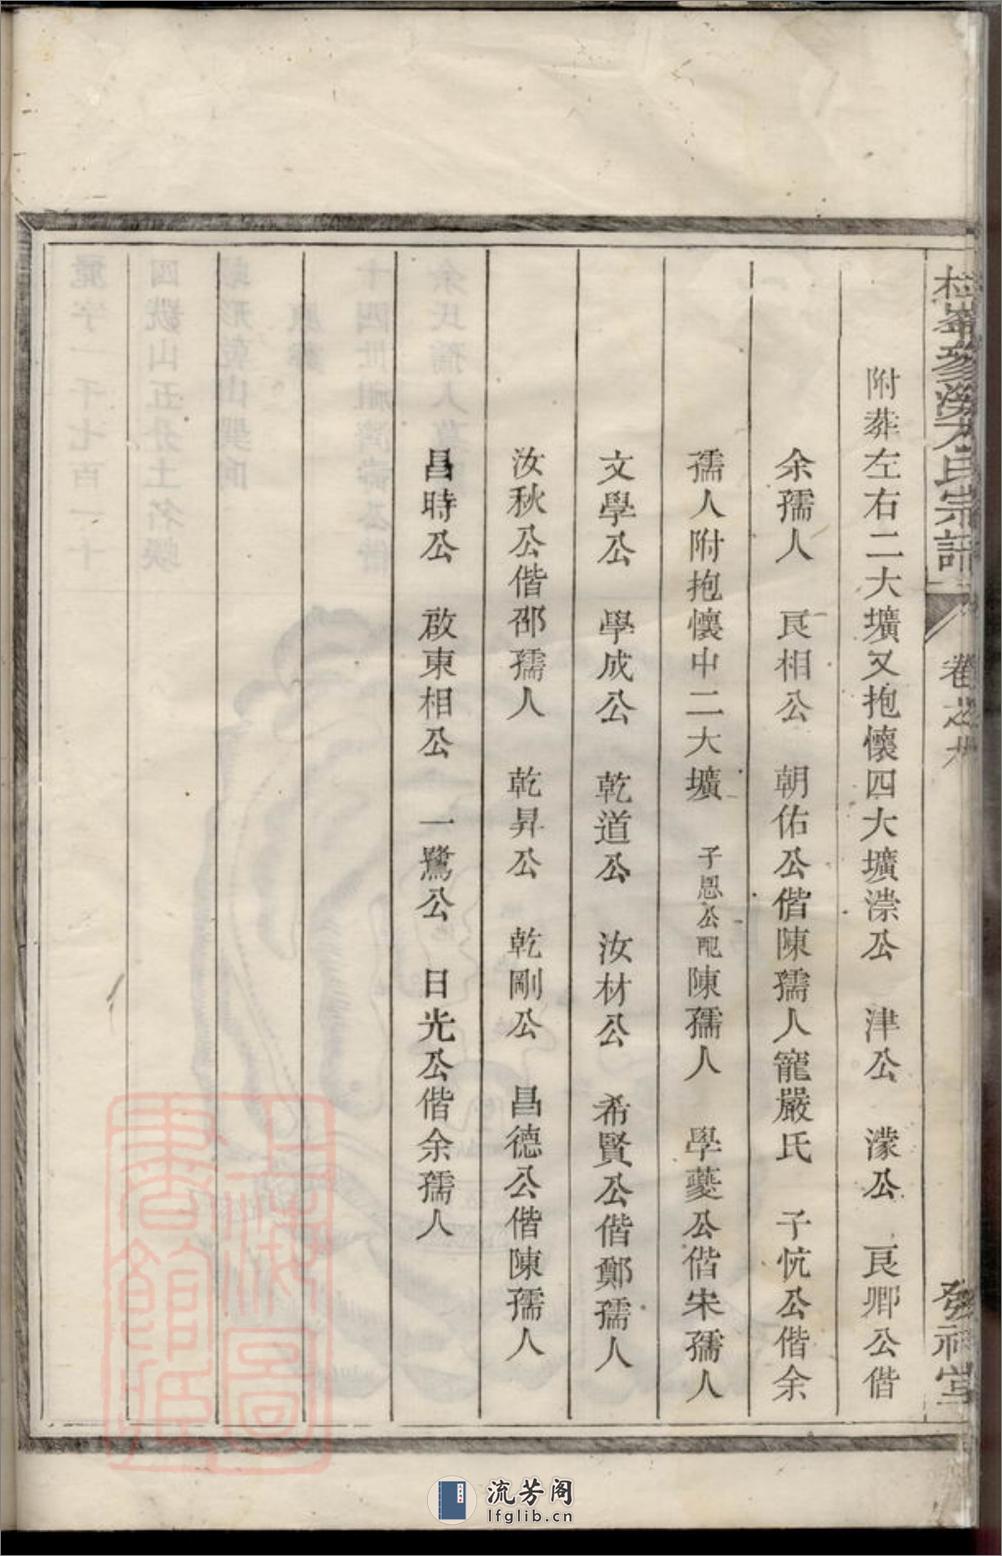 宗譜
卷之
附葬左右二大壙又抱懷四大壙漴公 津公 濛公 良卿公偕
余孺人 良相公 朝佑公偕陳孺人寵嚴氏 子忼公偕余
孺人附抱懷中二大壙 子恩公配陳孺人 學夔公偕宋孺人
文學公 學成公 乾道公 汝材公 希賢公偕鄭孺人
汝秋公偕邵孺人 乾昇公 乾剛公 昌德公偕陳孺人
昌時公 啟東相公 一鷺公 日光公偕余孺人
上海圖書館藏
流芳阁
lfglib.cn